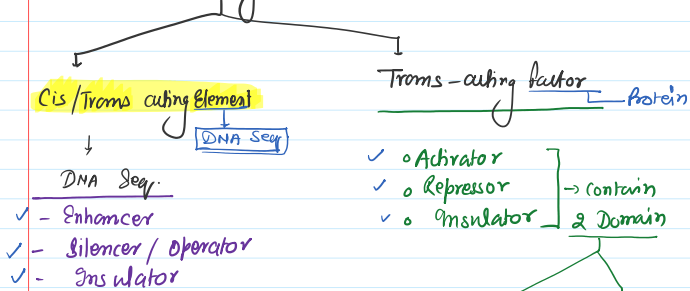 Cis/Trans acting Element
DNA Seq
DNA Seq.
- Enhancer
- Silencer / Operator
- Insulator
Trans-acting factor
Protein
o Activator
o Repressor
o Insulator
→ contain
2 Domain